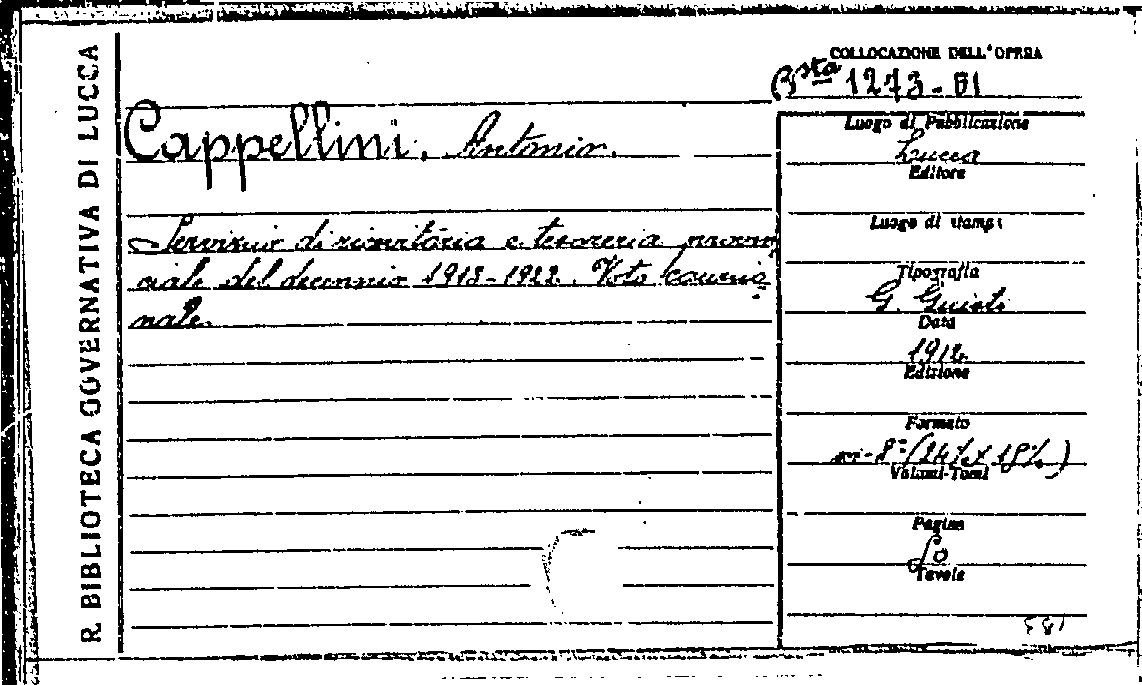 R. BIBLIOTECA GOVERNATIVA DI LUCCA
COLLOCAZIONE DELL'OPERA
Bsta 1273-81
Cappellini, Antonio.
Servizio di ricevitoria e tesoreria provin
ciale del decennio 1913-1922. Voto commis
nale.
Luogo di Pubblicazione
Lucca
Editore
Luogo di stampa
Tipografia
G. Giusti
Data
1912
Edizione
Formato
in-8° (24½ x 18½)
Volumi-Tomi
Pagine
10
Tavole